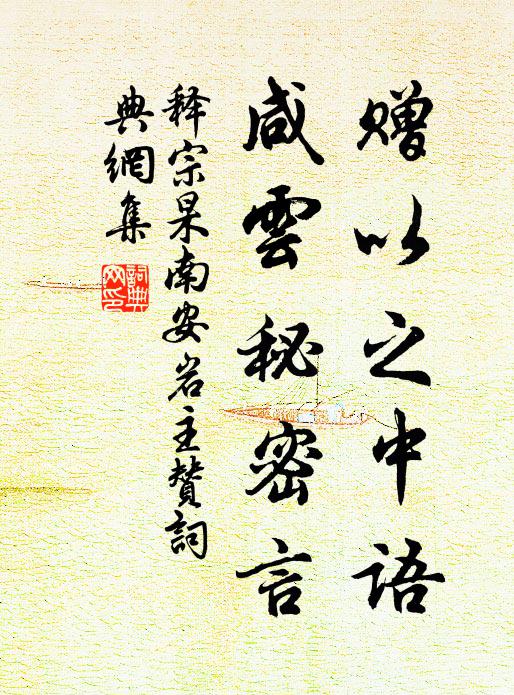 赠以之中语
咸雲秘密言
释宗杲南安岩主赞詞
典網集
詞典网印